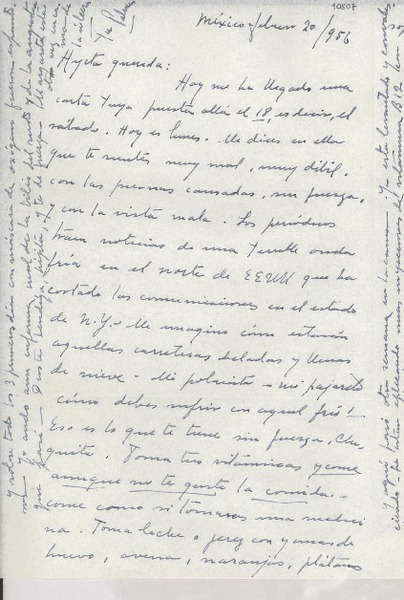 10807
México - febrero 20/956
Hijita querida:
Hoy me ha llegado una
carta tuya puesta allá el 18, es decir, el
sábado. Hoy es lunes. Me dices en ella
que te sientes muy mal, muy débil,
con las piernas cansadas, sin fuerza,
y con la vista mala. Los periódicos
traen noticias de una terrible onda
fría en el norte de EEUU que ha
cortado las comunicaciones en el estado
de N.Y. - Me imagino cómo estarán
aquellas carreteras heladas y llenas
de nieve - Mi pobrecita - mi pajarito
¡cómo debes sufrir con aquel frío! -
Eso es lo que te tiene sin fuerza, Chi-
quita. Toma tus vitaminas y come
aunque no te guste la comida. -
Come como si tomaras una medici
na. Toma leche, jerez con yemas de
huevo, avena, naranjas, plátanos
y sobre todo los 3 primeros días con máscara de oxígeno fueron
Yo ando aun enferma
Tu Palma
Y aquí pasó otra semana en la cama. Ya está levantado y
aplicando unas inyecciones de vitamina B12